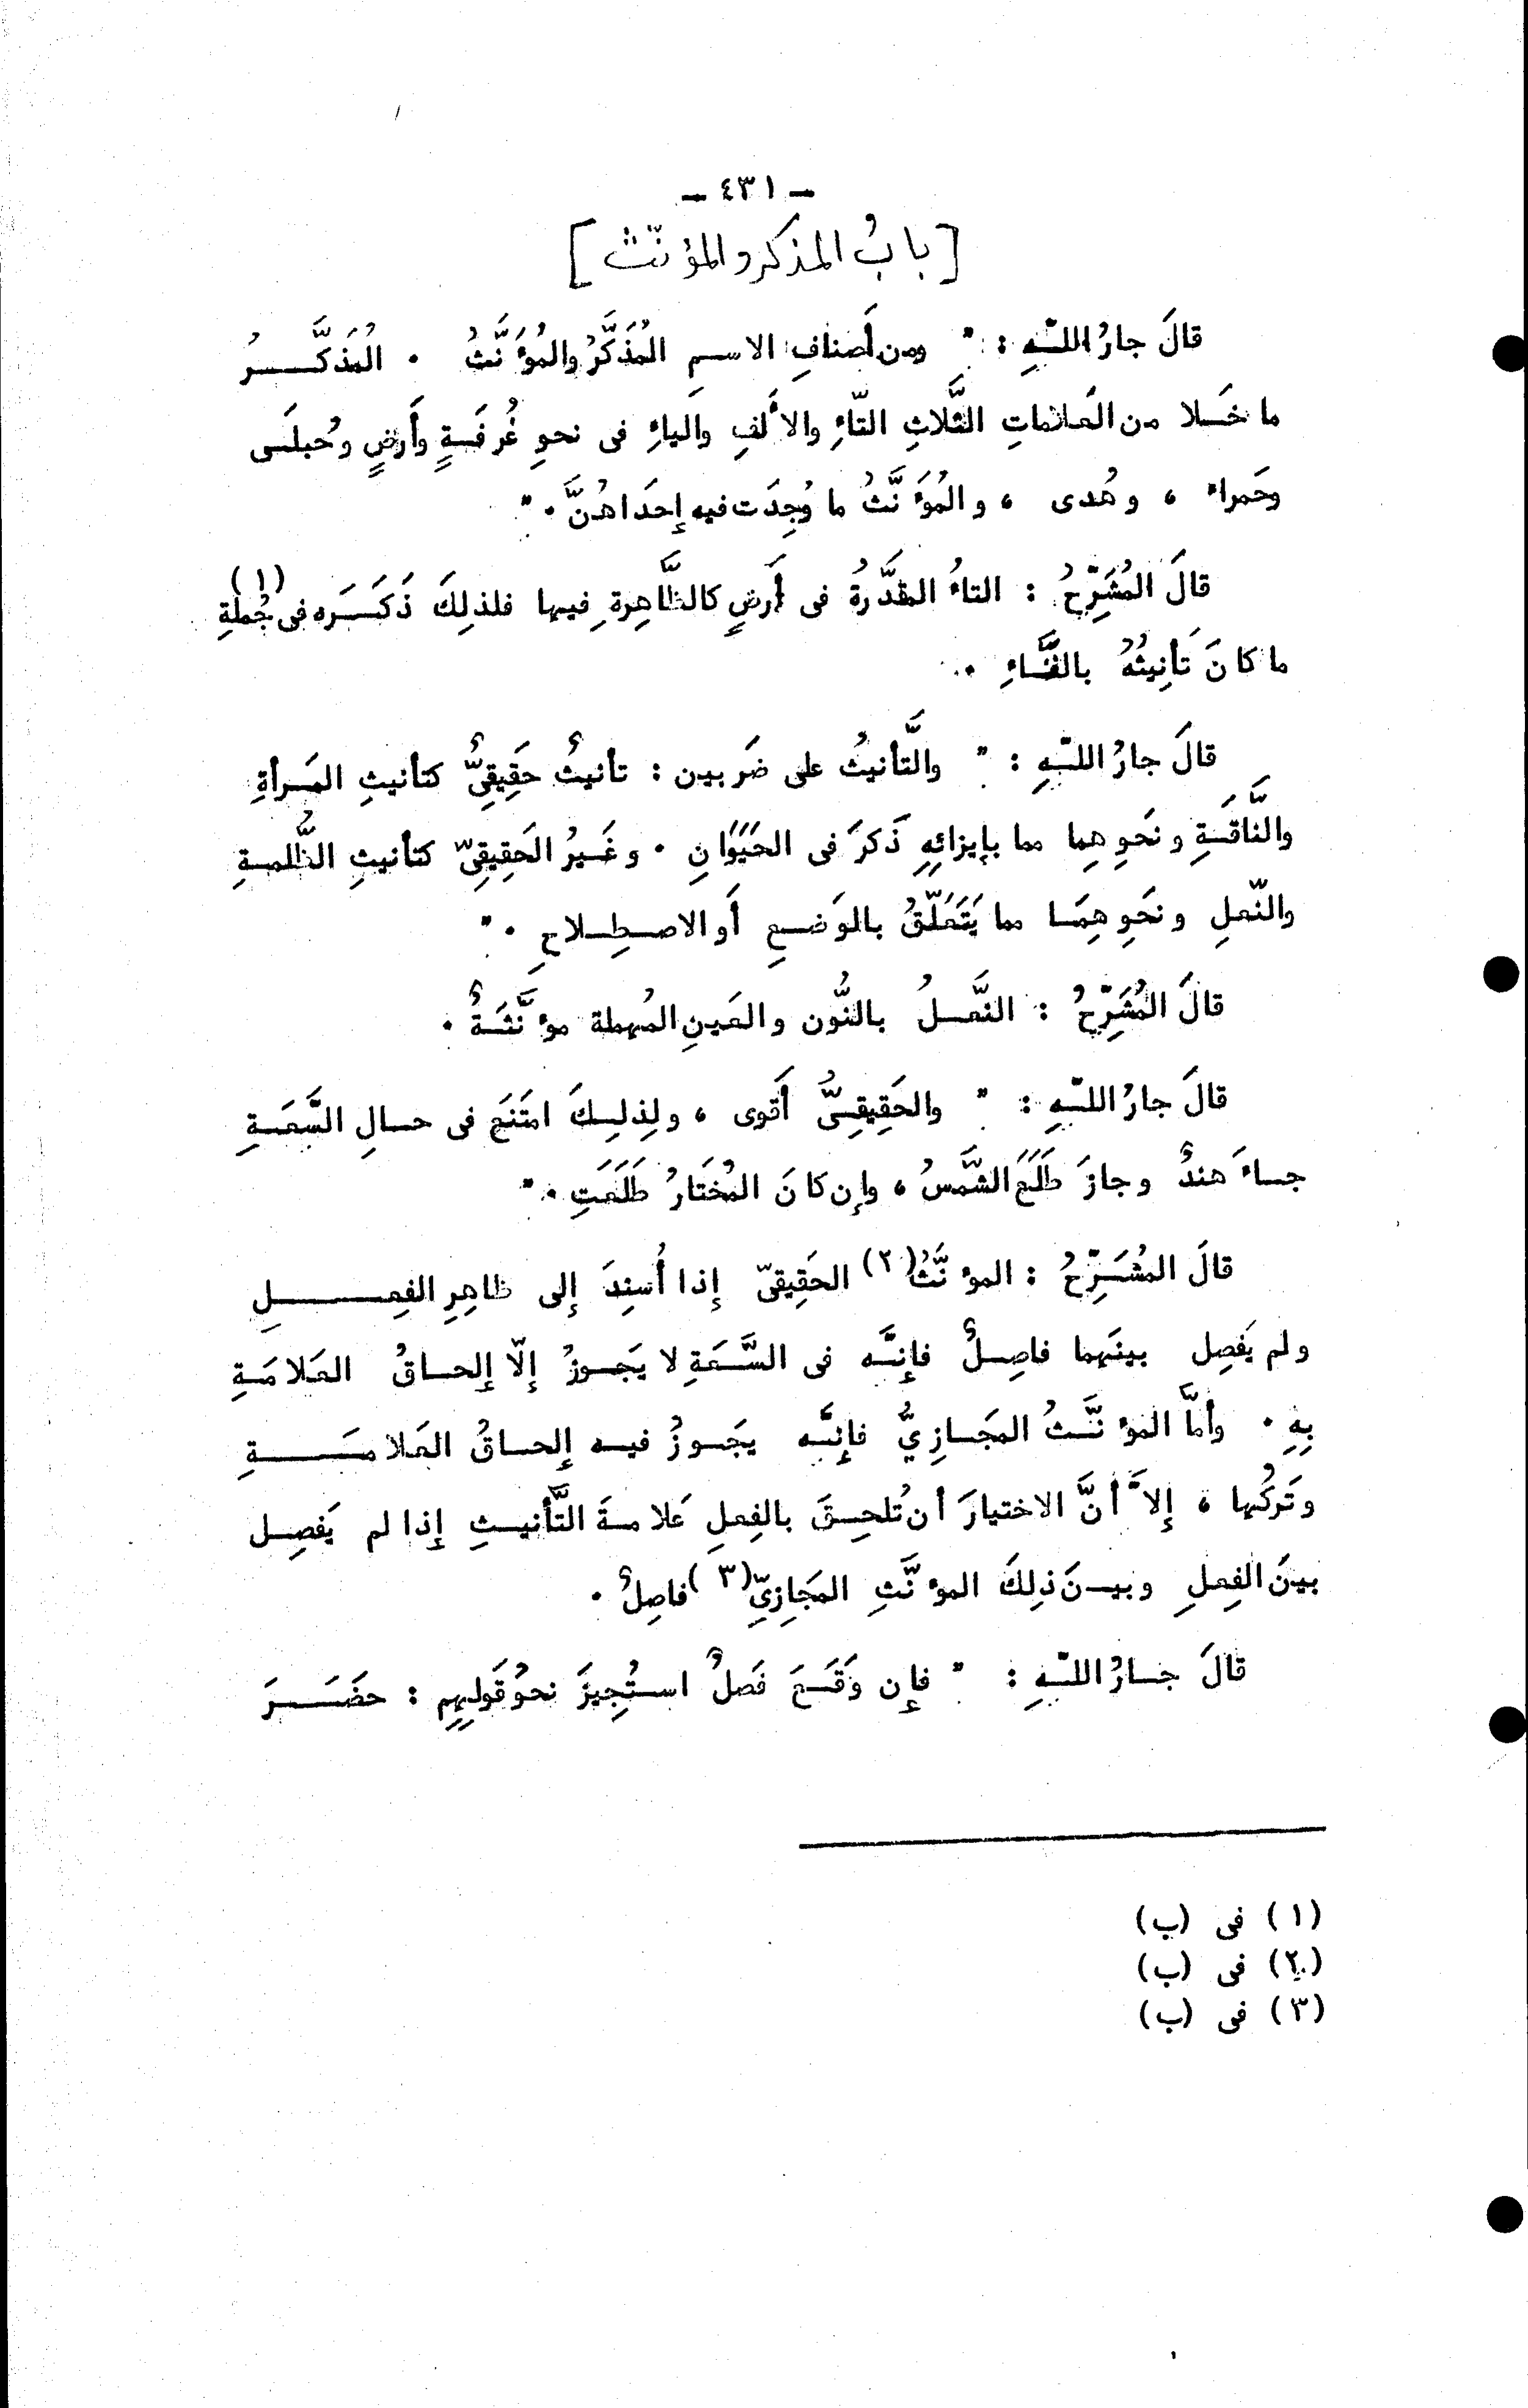 - ٤٣١ -
[ بابُ المذكر والمؤنّث ]
قالَ جارُ اللّهِ : " ومن أَصنافِ الاسمِ المُذَكَّرُ والمُؤَنَّثُ . المُذَكَّرُ
ما خَلا من العَلاماتِ الثَّلاثِ التّاءِ والأَلفِ والياءِ فى نحوِ غُرفَةٍ وأَرضٍ وحُبلَى
وحَمراءَ ، وهُدى ، والمُؤَنَّثُ ما وُجِدَت فيه إِحدَاهُنَّ . "
قالَ المُشَرِّحُ : التاءُ المقدَّرةُ فى أَرضٍ كالظَّاهِرةِ فيها فلذلِكَ ذَكَرَه فى جُملَةِ (١)
ما كانَ تَأنِيثُهُ بالتَّاءِ .
قالَ جارُ اللّهِ : " والتَّأنيثُ على ضَربين : تأنيثٌ حَقِيقِىٌّ كتأنيثِ المَرأةِ
والنَّاقَةِ ونَحوِهِما مما بإيزائِهِ ذَكرَ فى الحَيَوَانِ . وغَيرُ الحَقِيقِىّ كتأنيثِ الظُّلمةِ
والنّعلِ ونَحوِهِمَا مما يَتَعَلَّقُ بالوَضعِ أَو الاصطِلاحِ . "
قالَ المُشَرِّحُ : النَّعلُ بالنُّون والعَينِ المُهملة مؤنَّثَةٌ .
قالَ جارُ اللّهِ : " والحَقِيقِىُّ أَقوى ، ولِذلِكَ امتَنَعَ فى حالِ السَّعَةِ
جاءَ هندٌ وجازَ طَلَعَ الشَّمسُ ، وإِن كانَ المُختَارُ طَلَعَتِ . "
قالَ المُشَرِّحُ : المؤنَّثُ (٢) الحَقِيقىّ إِذا أُسنِدَ إِلى ظاهِرِ الفِعلِ
ولم يَفصِل بينَهما فاصِلٌ فإِنَّه فى السَّعَةِ لا يَجوزُ إِلّا إِلحاقُ العَلامَةِ
بِهِ . وأمَّا المؤنَّثُ المَجَازِيُّ فإِنَّه يجَوزُ فيه إِلحاقُ العَلامَةِ
وتَركُها ، إِلاَّ أنَّ الاختيارَ أن تُلحِقَ بالفِعلِ عَلامةَ التَّأنيثِ إِذا لم يَفصِل
بينَ الفِعلِ وبينَ ذلِكَ المؤنَّثِ المَجَازِيِّ (٣) فاصِلٌ .
قالَ جارُ اللّهِ : " فإِن وَقَعَ فَصلٌ استُجِيزَ نحوُ قَولِهِم : حضَرَ
(١) فى (ب)
(٢) فى (ب)
(٣) فى (ب)